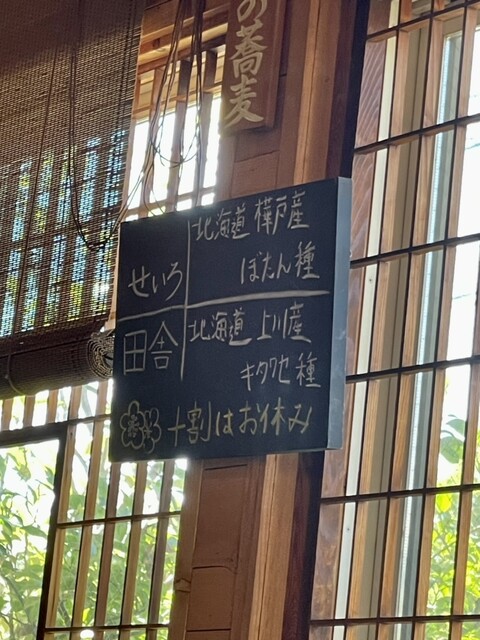 の蕎麦
せいろ
北海道 樺戸産
ぼたん種
田舎
北海道 上川産
キタワセ種
十割はお休み